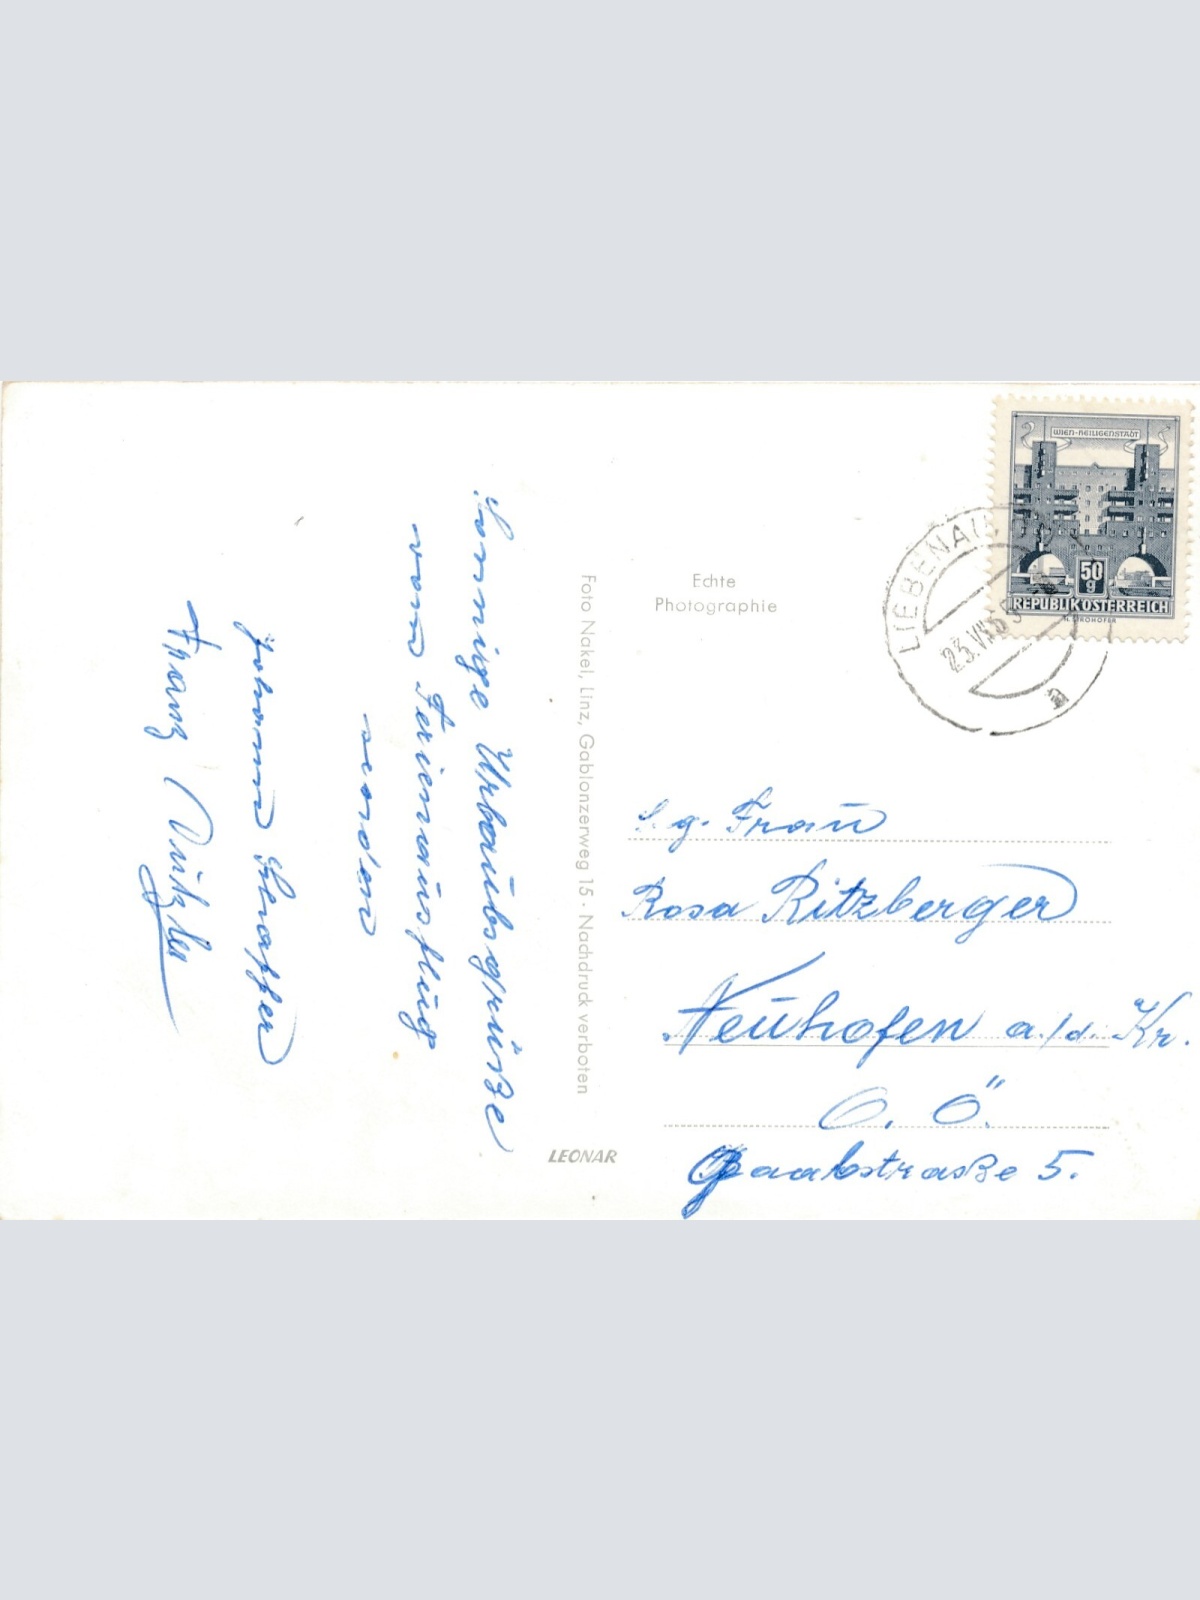 Sonnige Urlaubsgrüße
vom Ferienausflug
senden
Johann
Franz
Foto Nakel, Linz, Gablonzerweg 15 · Nachdruck verboten
LEONAR
Echte
Photographie
WIEN-HEILIGENSTADT
50
g
REPUBLIK ÖSTERREICH
LIEBENAU
23.VII.65
a
S. g. Frau
Rosa Ritzberger
Neuhofen a./d. Kr.
O. Ö.
straße 5.